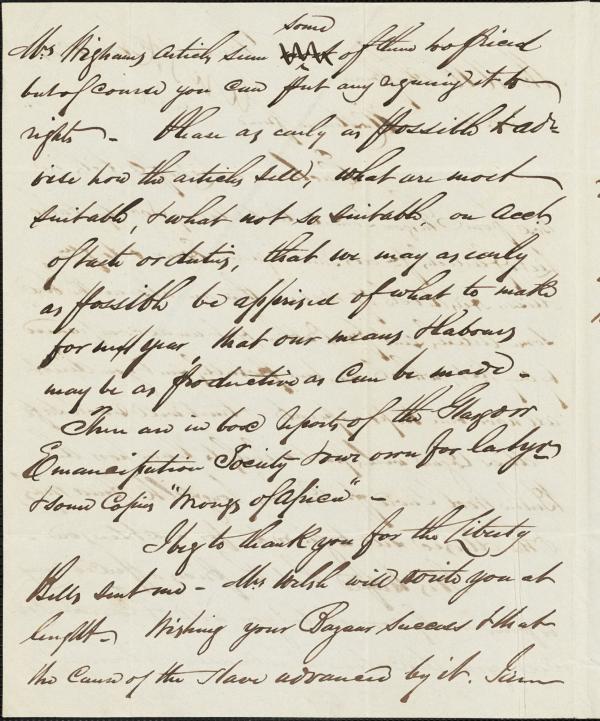 some
Mrs Wighams articles seem of them too fried
but of course you can put any requiring it to
rights - Please as early as possible to ad=
vise how the articles sell, what are most
suitable, & what not so suitable, on acct
of taste or duties, that we may as early
as possible be apprised of what to make
for next year, that our means & labours
may be as productive as can be made -
There are in box Reports of the Glasgow
Emancipation Society & our own for last yr
& some Copies "Wrongs of Africa" -
I beg to thank you for the Liberty
Bells sent me - Mrs Welsh will write you at
lenght - Wishing your Bazaar success & that
the cause of the slave advanced by it. I am